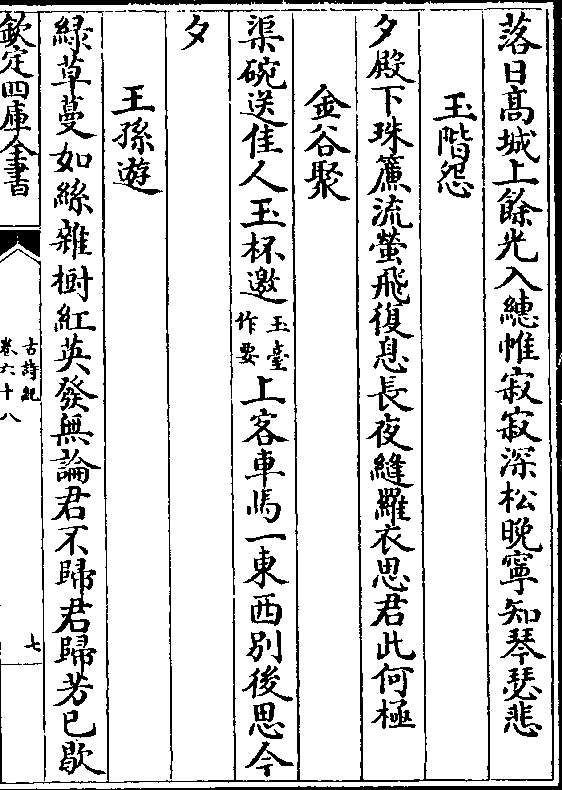 落日高城上餘光入繐帷寂寂深松晚寧知琴瑟悲
玉階怨
夕殿下珠簾流螢飛復息長夜縫羅衣思君此何極
金谷聚
渠碗送佳人玉杯邀玉臺作要上客車馬一東西別後思今
夕
王孫遊
綠草蔓如絲雜樹紅英發無論君不歸君歸芳已歇
欽定四庫全書
古詩紀
卷六十八
七